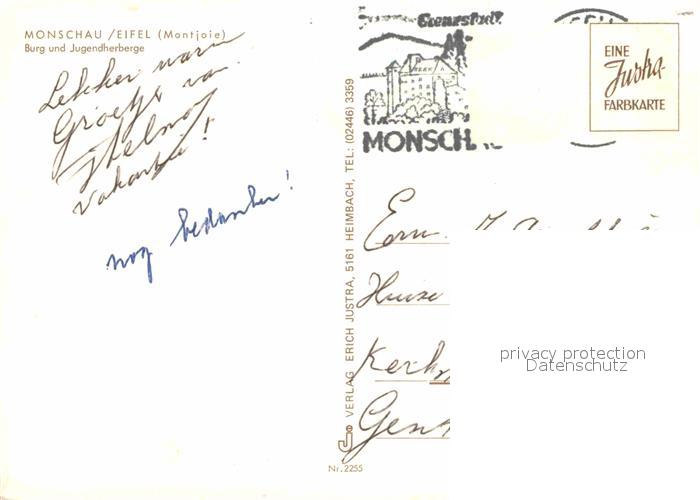 MONSCHAU /EIFEL (Montjoie)
Burg und Jugendherberge
Lekker warm
Groetjes van
Vakantie!
nog bedanken!
VERLAG ERICH JUSTRA, 5161 HEIMBACH, TEL: (02446) 3359
Nr. 2255
MONSCH
EINE
Justra-
FARBKARTE
Huize
Kerk
Gen
privacy protection
Datenschutz